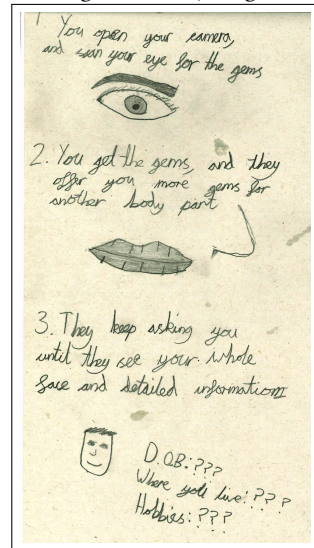 You open your camera,
and scan your eye for the gems
2. You get the gems, and they
offer you more gems for
another body part
3. They keep asking you
until they see your whole
face and detailed information
D.O.B: ???
Where you live: ???
Hobbies: ???